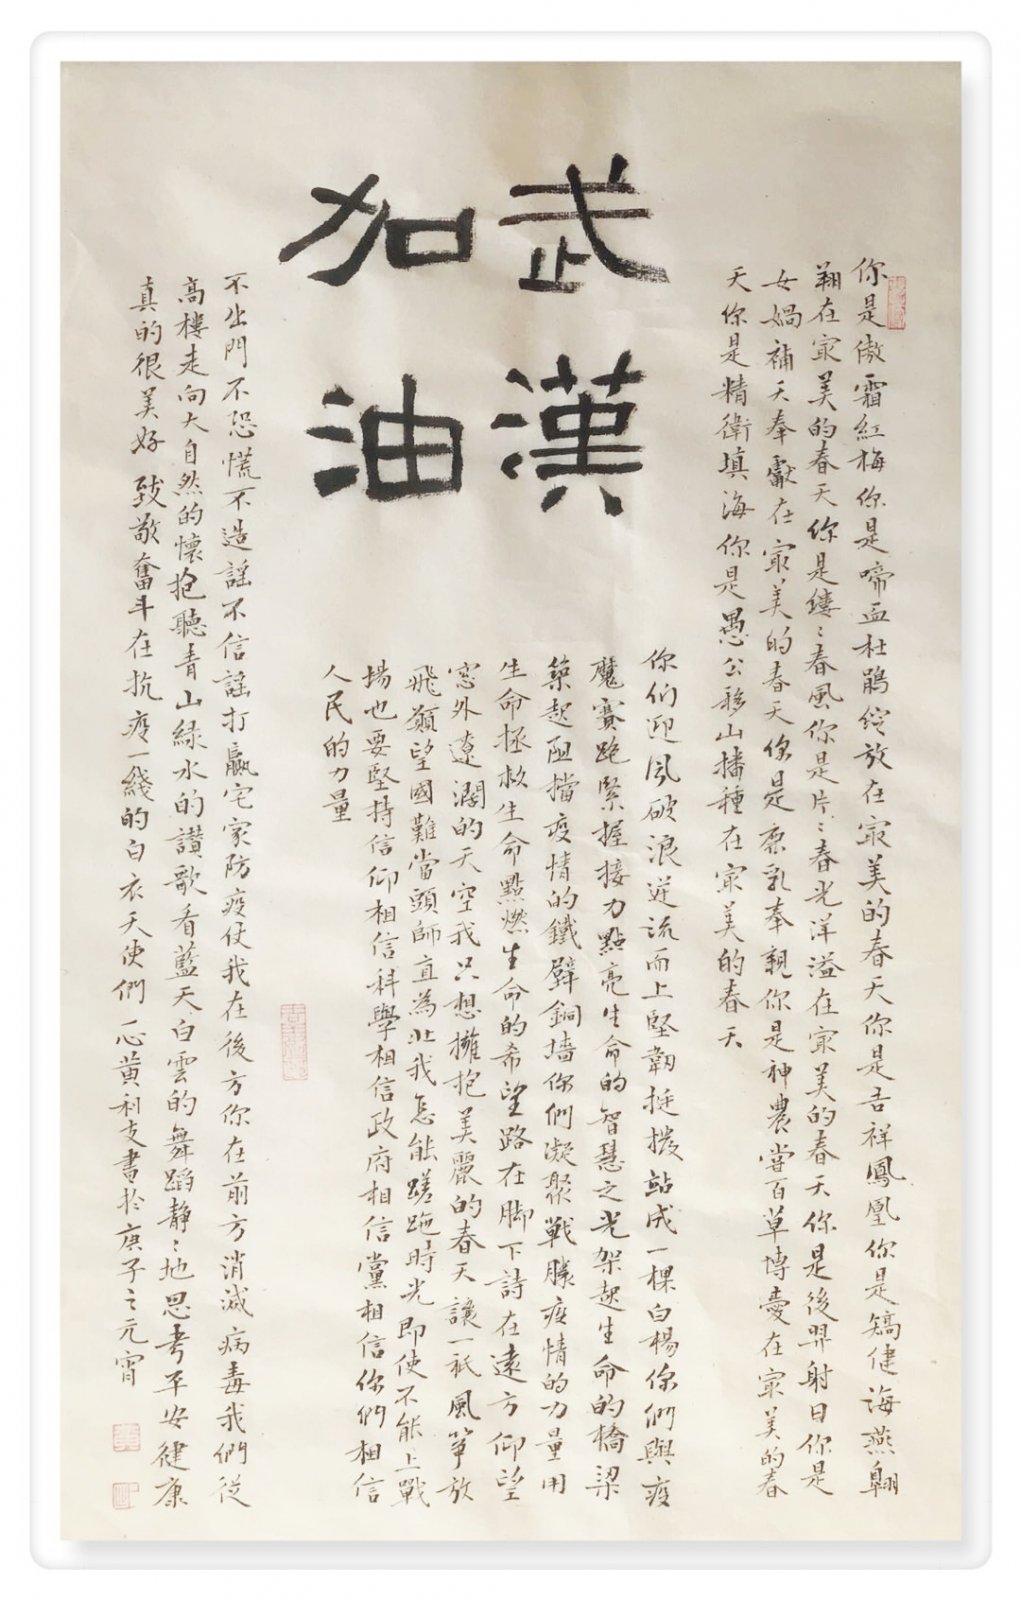 武漢
加油
你是傲霜紅梅你是啼血杜鵑綻放在最美的春天你是吉祥鳳凰你是矯健海燕翱
翔在最美的春天你是缕〻春風你是片〻春光洋溢在最美的春天你是後羿射日你是
女媧補天奉獻在最美的春天你是鹿乳奉親你是神農嘗百草博愛在最美的春
天你是精衛填海你是愚公移山播種在最美的春天
你们迎风破浪逆流而上堅韌挺拨站成一棵白楊你們與疫
魔賽跑緊握接力點亮生命的智慧之光架起生命的橋梁
築起阻擋疫情的鐵壁銅墻你們凝聚戰勝疫情的力量用
生命拯救生命點燃生命的希望路在脚下詩在遠方仰望
窓外遼濶的天空我只想擁抱美麗的春天讓一祇風箏放
飛願望國難當頭師直為壯我怎能蹉跎時光即使不能上戰
場也要堅持信仰相信科學相信政府相信黨相信你們相信
人民的力量
不出門不恐慌不造謠不信謠打贏宅家防疫仗我在後方你在前方消滅病毒我們從
高樓走向大自然的懷抱聽青山綠水的讚歌看藍天白雲的舞蹈静〻地思考平安健康
真的很美好 致敬奮斗在抗疫一綫的白衣天使們 黄利支書於庚子之元宵